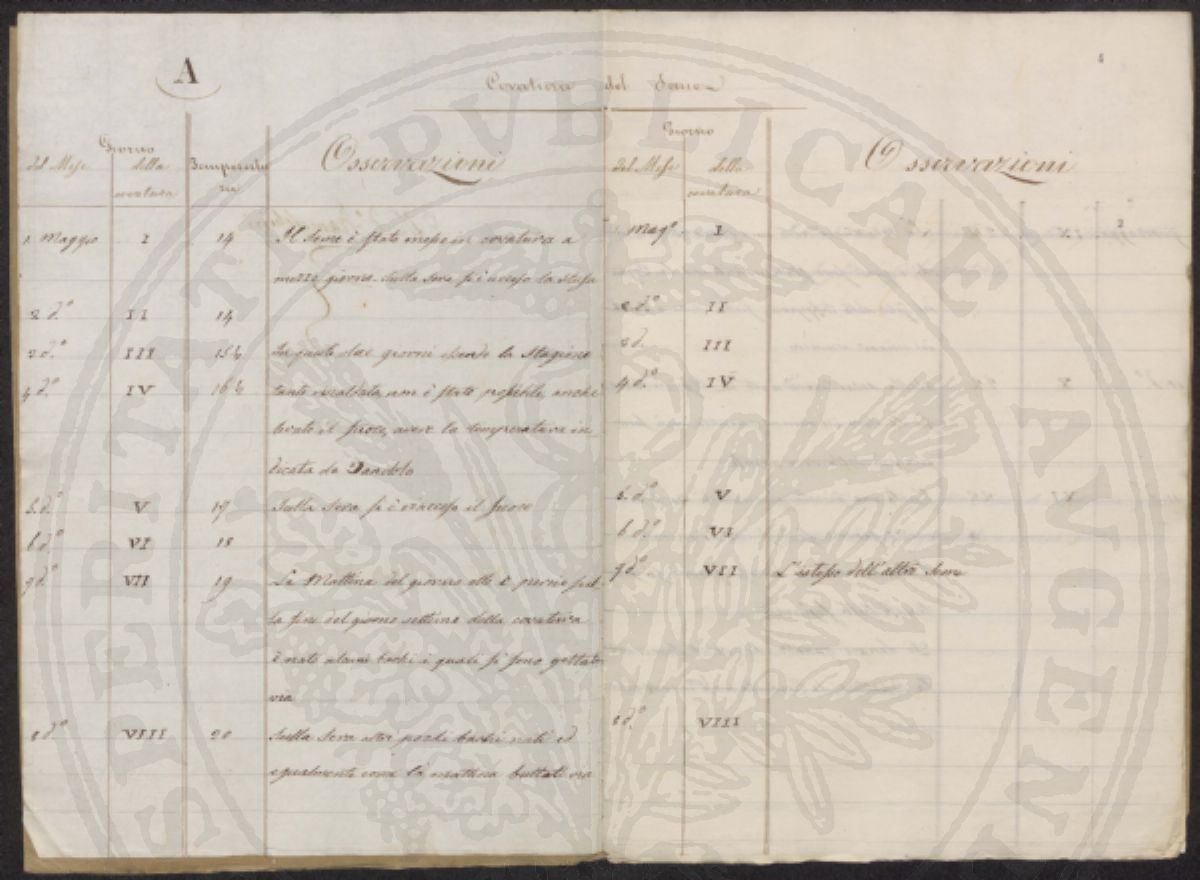 A
Covatura del Seme
Giorno
del Mese
della covatura
Temperatura
Osservazioni
1 Maggio I 14 Il Seme è stato messo in covatura a
mezzo giorno. Sulla sera si è acceso la stufa
2 d.º II 14
3 d.º III 15½ In questi due giorni essendo la Stagione
4 d.º IV 16½ tanto riscaldata, non è stato possibile, anche
levato il fuoco, avere la temperatura in-
dicata da Dandolo
5 d.º V 19 Sulla Sera si è riacceso il fuoco
6 d.º VI 18
7 d.º VII 19 La Mattina del giorno alle
la fine del giorno settimo della covatura
è nato alcuni bachi i quali si sono gettati
via
8 d.º VIII 20 Sulla sera altri pochi bachi nati ed
egualmente come la mattina buttati via
Giorno
del Mese
della covatura
Osservazioni
1 Magº I
2 d.º II
3 d. III
4 d.º IV
5 d.º V
6 d.º VI
7 d.º VII L'istesso dell'altro Seme
8 d.º VIII
PROSPERITATE PVBLICAE AVGENDAE